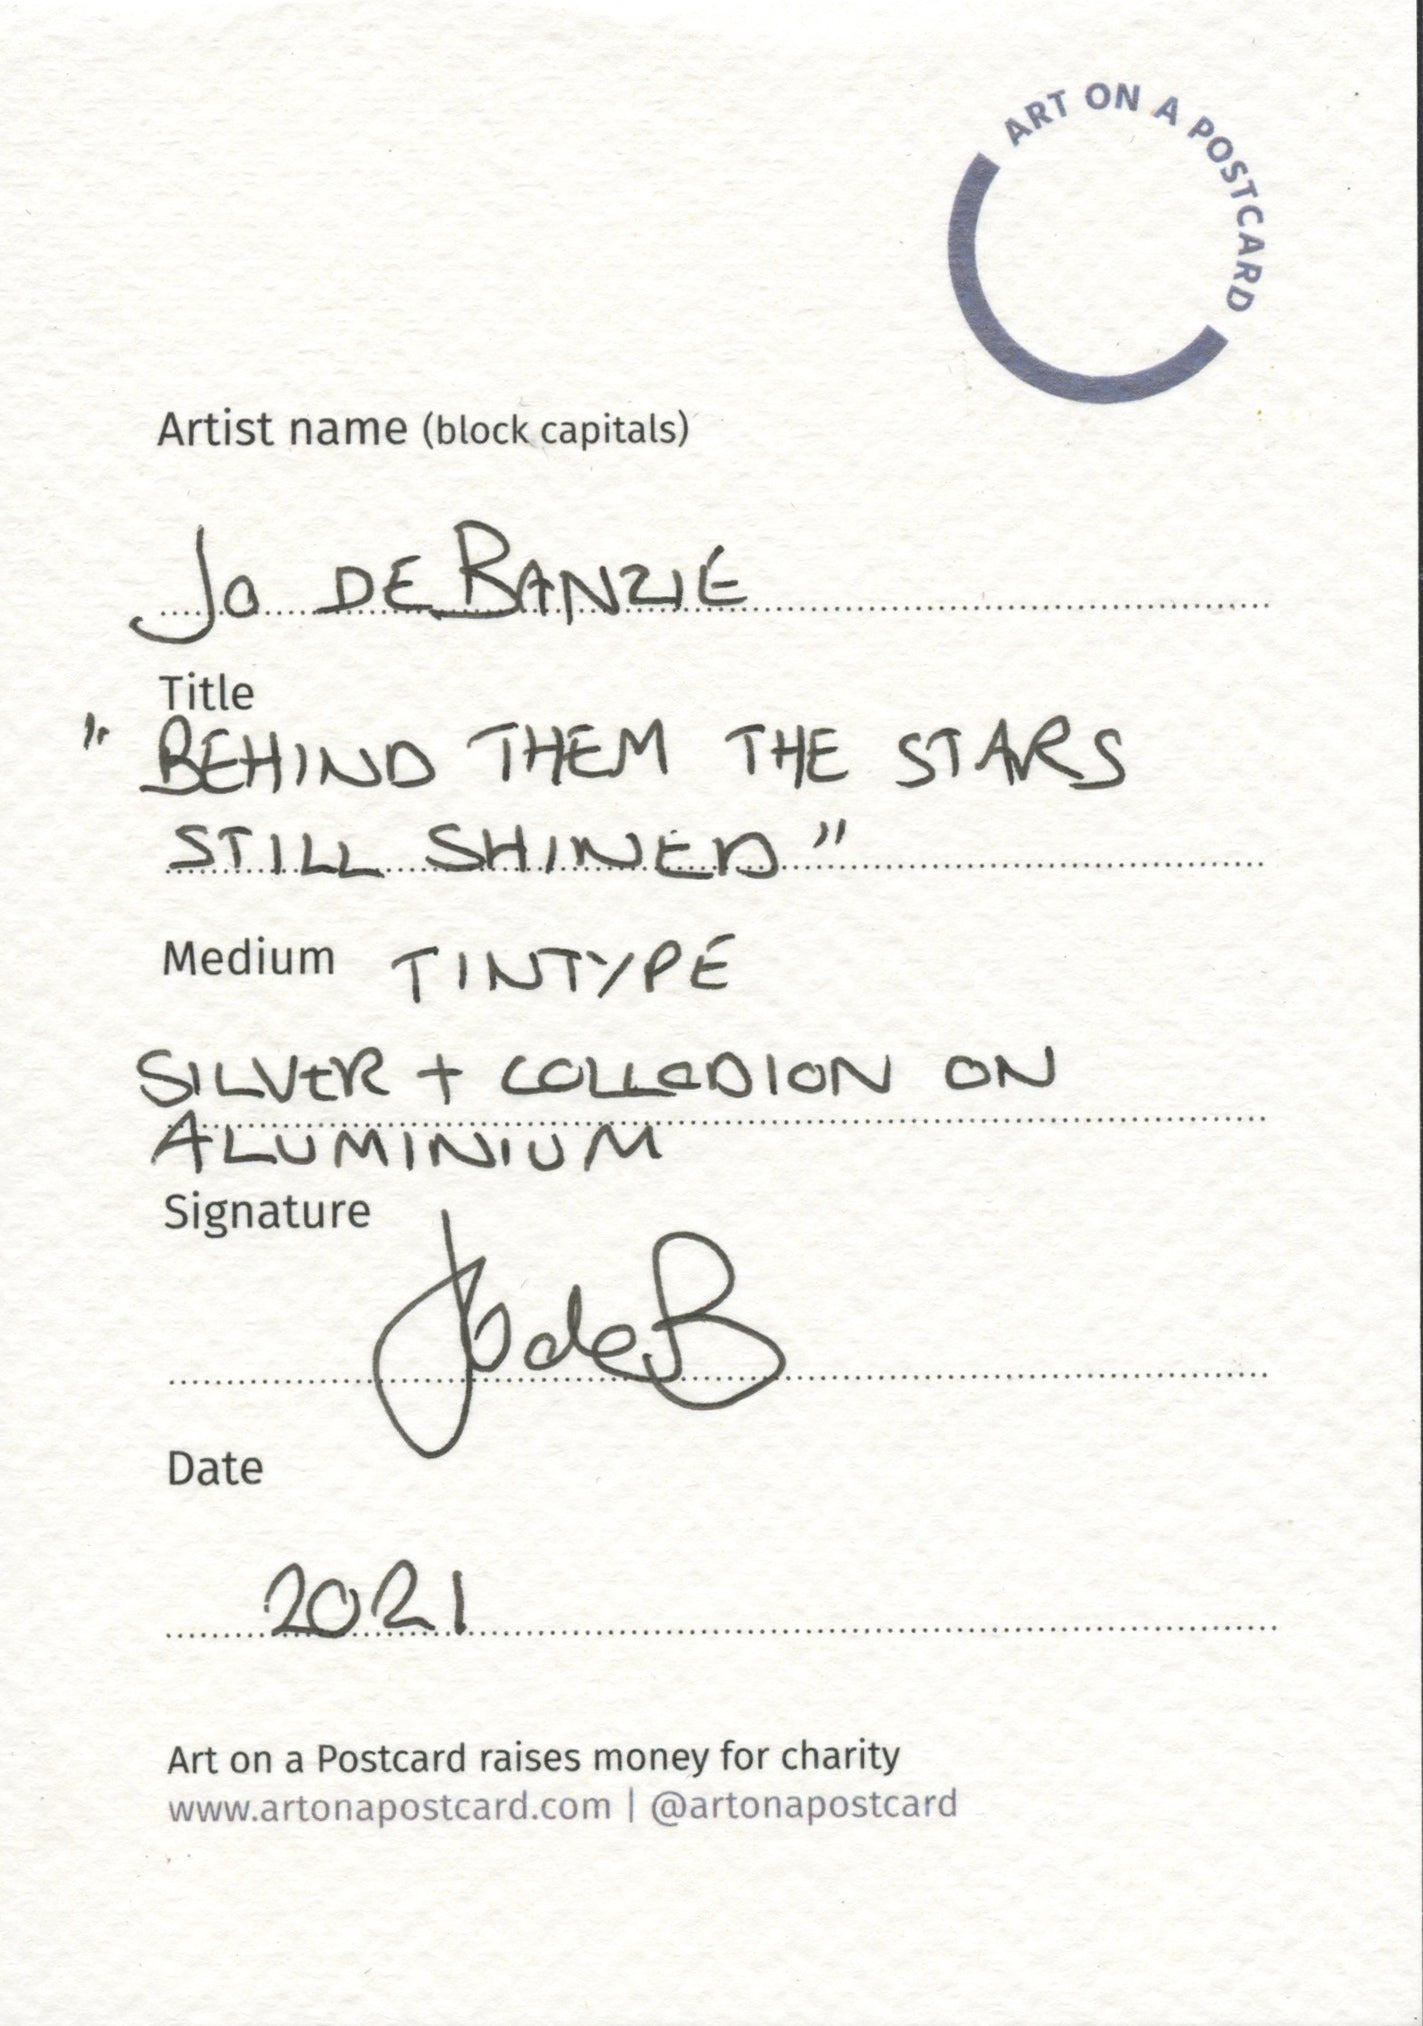 ART ON A POSTCARD
Artist name (block capitals)
JO DE BANZIE
Title
"BEHIND THEM THE STARS
STILL SHINED"
Medium TINTYPE
SILVER + COLLODION ON
ALUMINIUM
Signature
Jo de B
Date
2021
Art on a Postcard raises money for charity
www.artonapostcard.com | @artonapostcard